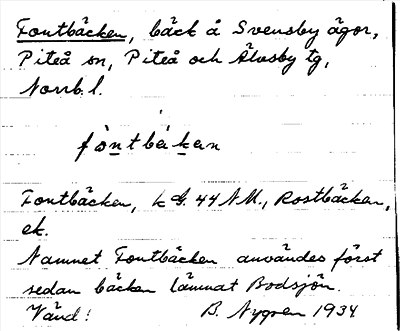 Fontbäcken, bäck å Svensby ägor,
Piteå sn, Piteå och Älvsby tg,
Norrb. l.
fòntbékan
Fontbäcken, k G. 44 NM., Rostbäcken,
ek.
Namnet Fontbäcken användes först
sedan bäcken lämnat Bodsjön.
Vänd!
B. Nygren 1934